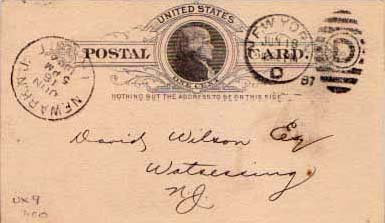 UNITED STATES
POSTAL CARD.
ONE CENT
NOTHING BUT THE ADDRESS TO BE ON THIS SIDE
NEW YORK
87
D
D
NEWARK, N.J.
JUN
David Wilson Esq
Watsessing
N.J.
UX9